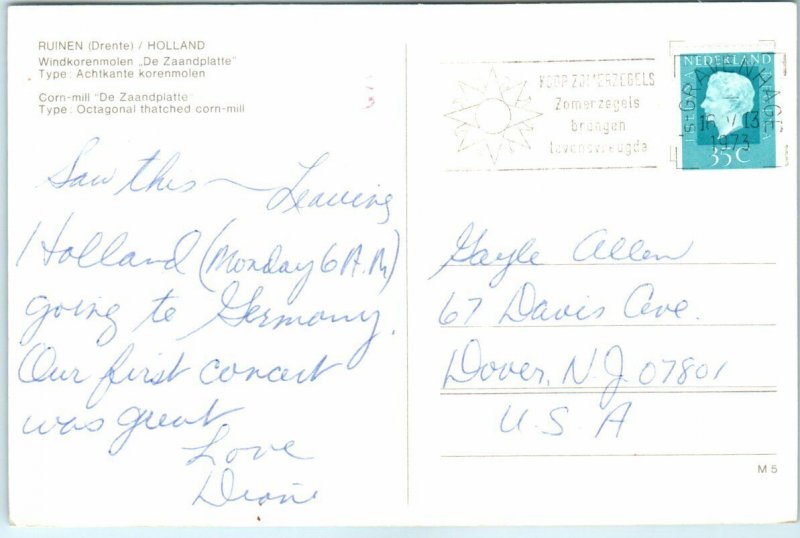 RUINEN (Drente) / HOLLAND
Windkorenmolen „De Zaandplatte”
Type: Achtkante korenmolen
Corn-mill “De Zaandplatte”
Type: Octagonal thatched corn-mill
Saw this ~ Leaving
Holland (Monday 6 A.M)
going to Germany.
Our first concert
was great.
Love
Diane
KOOP ZOMERZEGELS
Zomerzegels
brengen
levensvreugde
NEDERLAND
'S-GRAVENHAGE
13
1973
35 C
Gayle Allen
67 Davis Ave.
Dover, N.J 07801
U.S.A
M 5